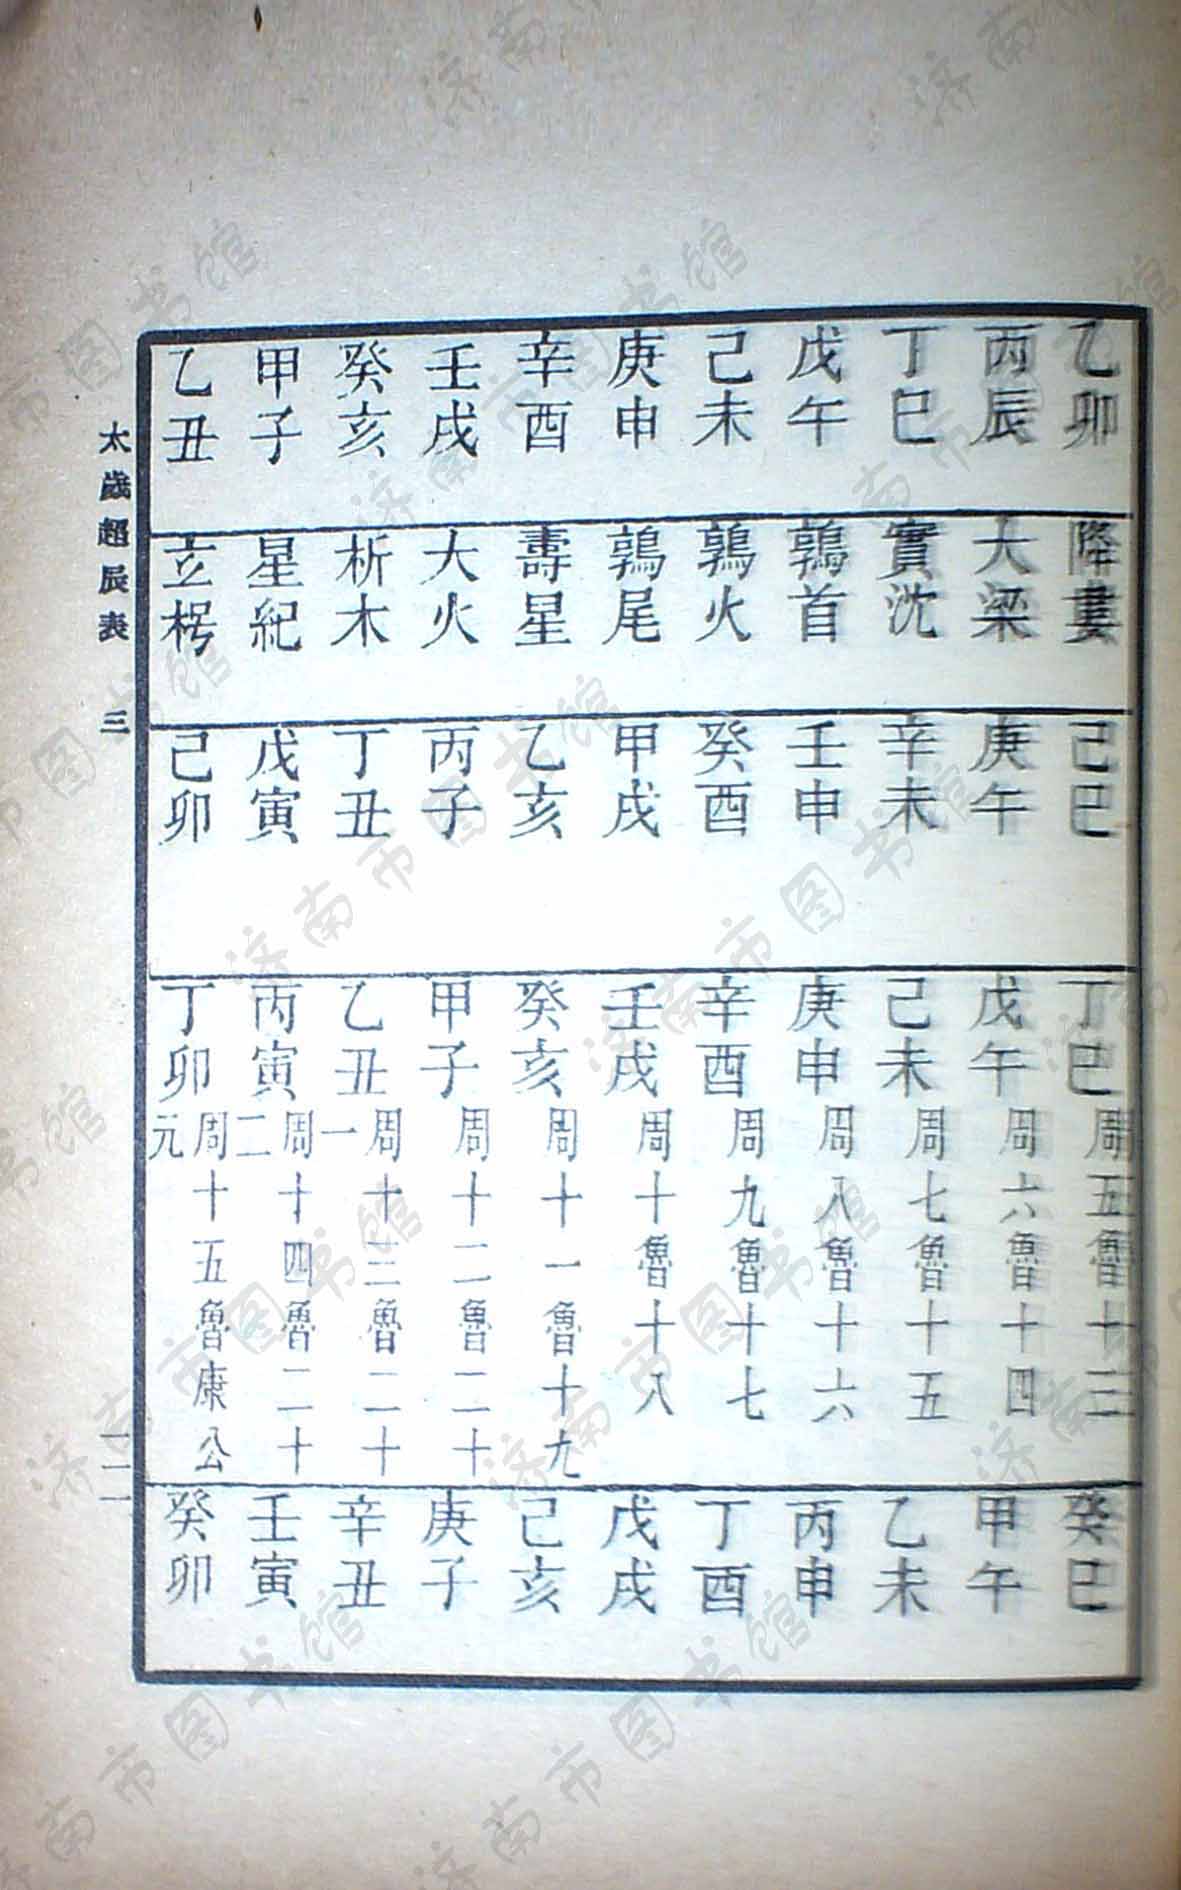 乙卯 降婁 己巳 丁巳 周五魯十三 癸巳
丙辰 大梁 庚午 戊午 周六魯十四 甲午
丁巳 實沈 辛未 己未 周七魯十五 乙未
戊午 鶉首 壬申 庚申 周八魯十六 丙申
己未 鶉火 癸酉 辛酉 周九魯十七 丁酉
庚申 鶉尾 甲戌 壬戌 周十魯十八 戊戌
辛酉 壽星 乙亥 癸亥 周十一魯十九 己亥
壬戌 大火 丙子 甲子 周十二魯二十 庚子
癸亥 析木 丁丑 乙丑 周十三魯二十一 辛丑
甲子 星紀 戊寅 丙寅 周十四魯二十二 壬寅
乙丑 玄枵 己卯 丁卯 周十五魯康公元 癸卯
太歲超辰表 三
济南市图书馆